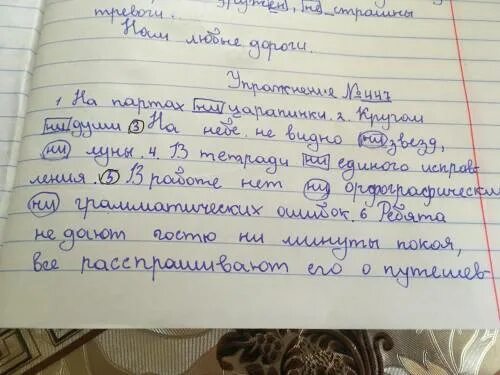 дружен, не страшны
тревоги.
Нам любые дороги.
Упражнение №447
1, На партах ни царапинки. 2. Кругом
ни души ③ На небе не видно ни звезд,
ни луны. 4. В тетради ни единого исправ-
ления. ⑤ В работе нет ни орфографических
ни грамматических ошибок. 6 Ребята
не дают гостю ни минуты покоя,
все расспрашивают его о путешев-